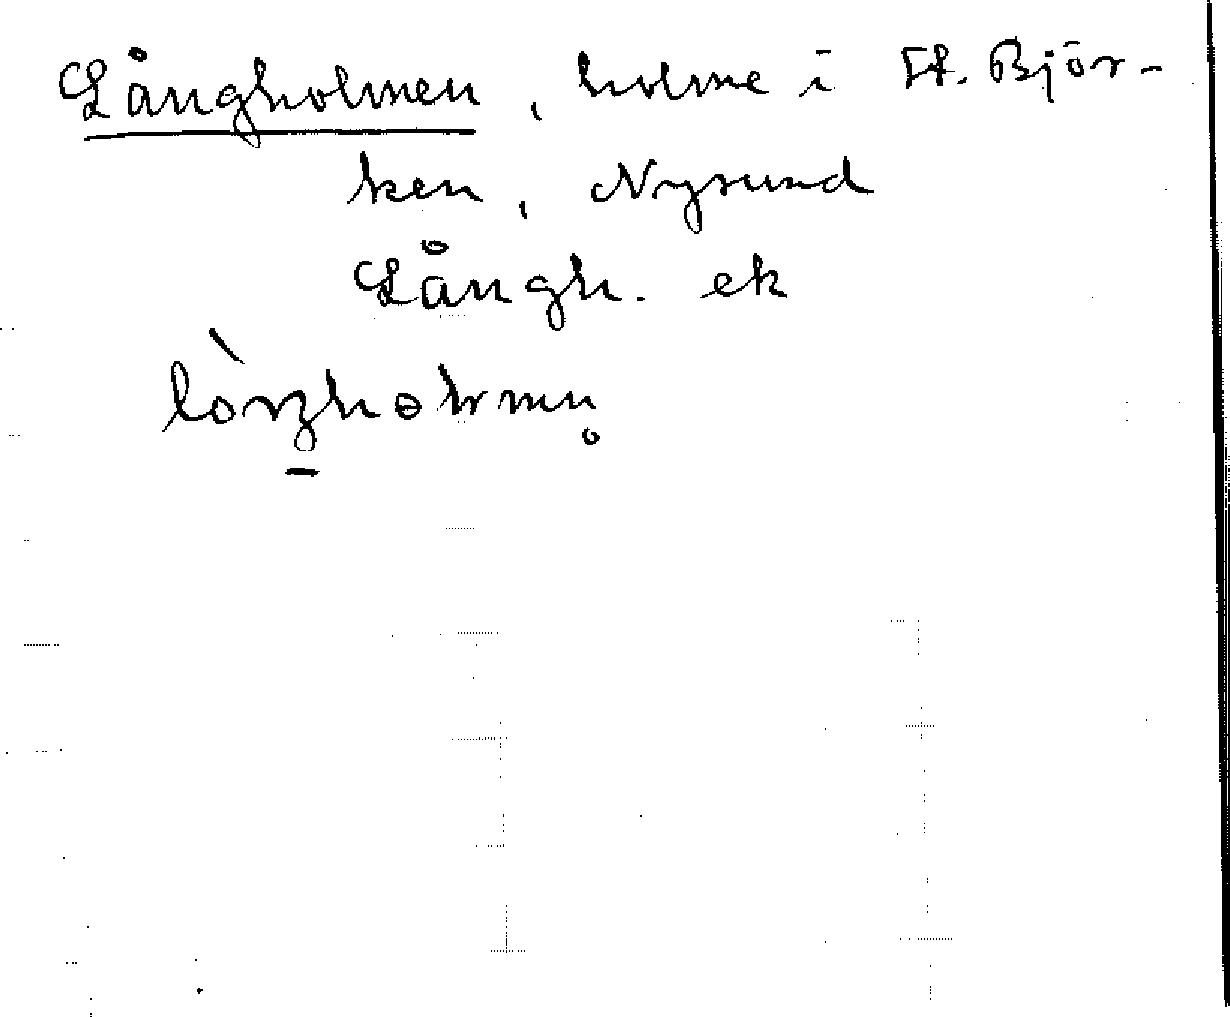 Långholmen, holme i St. Björ-
ken, Nysund
Långh. ek